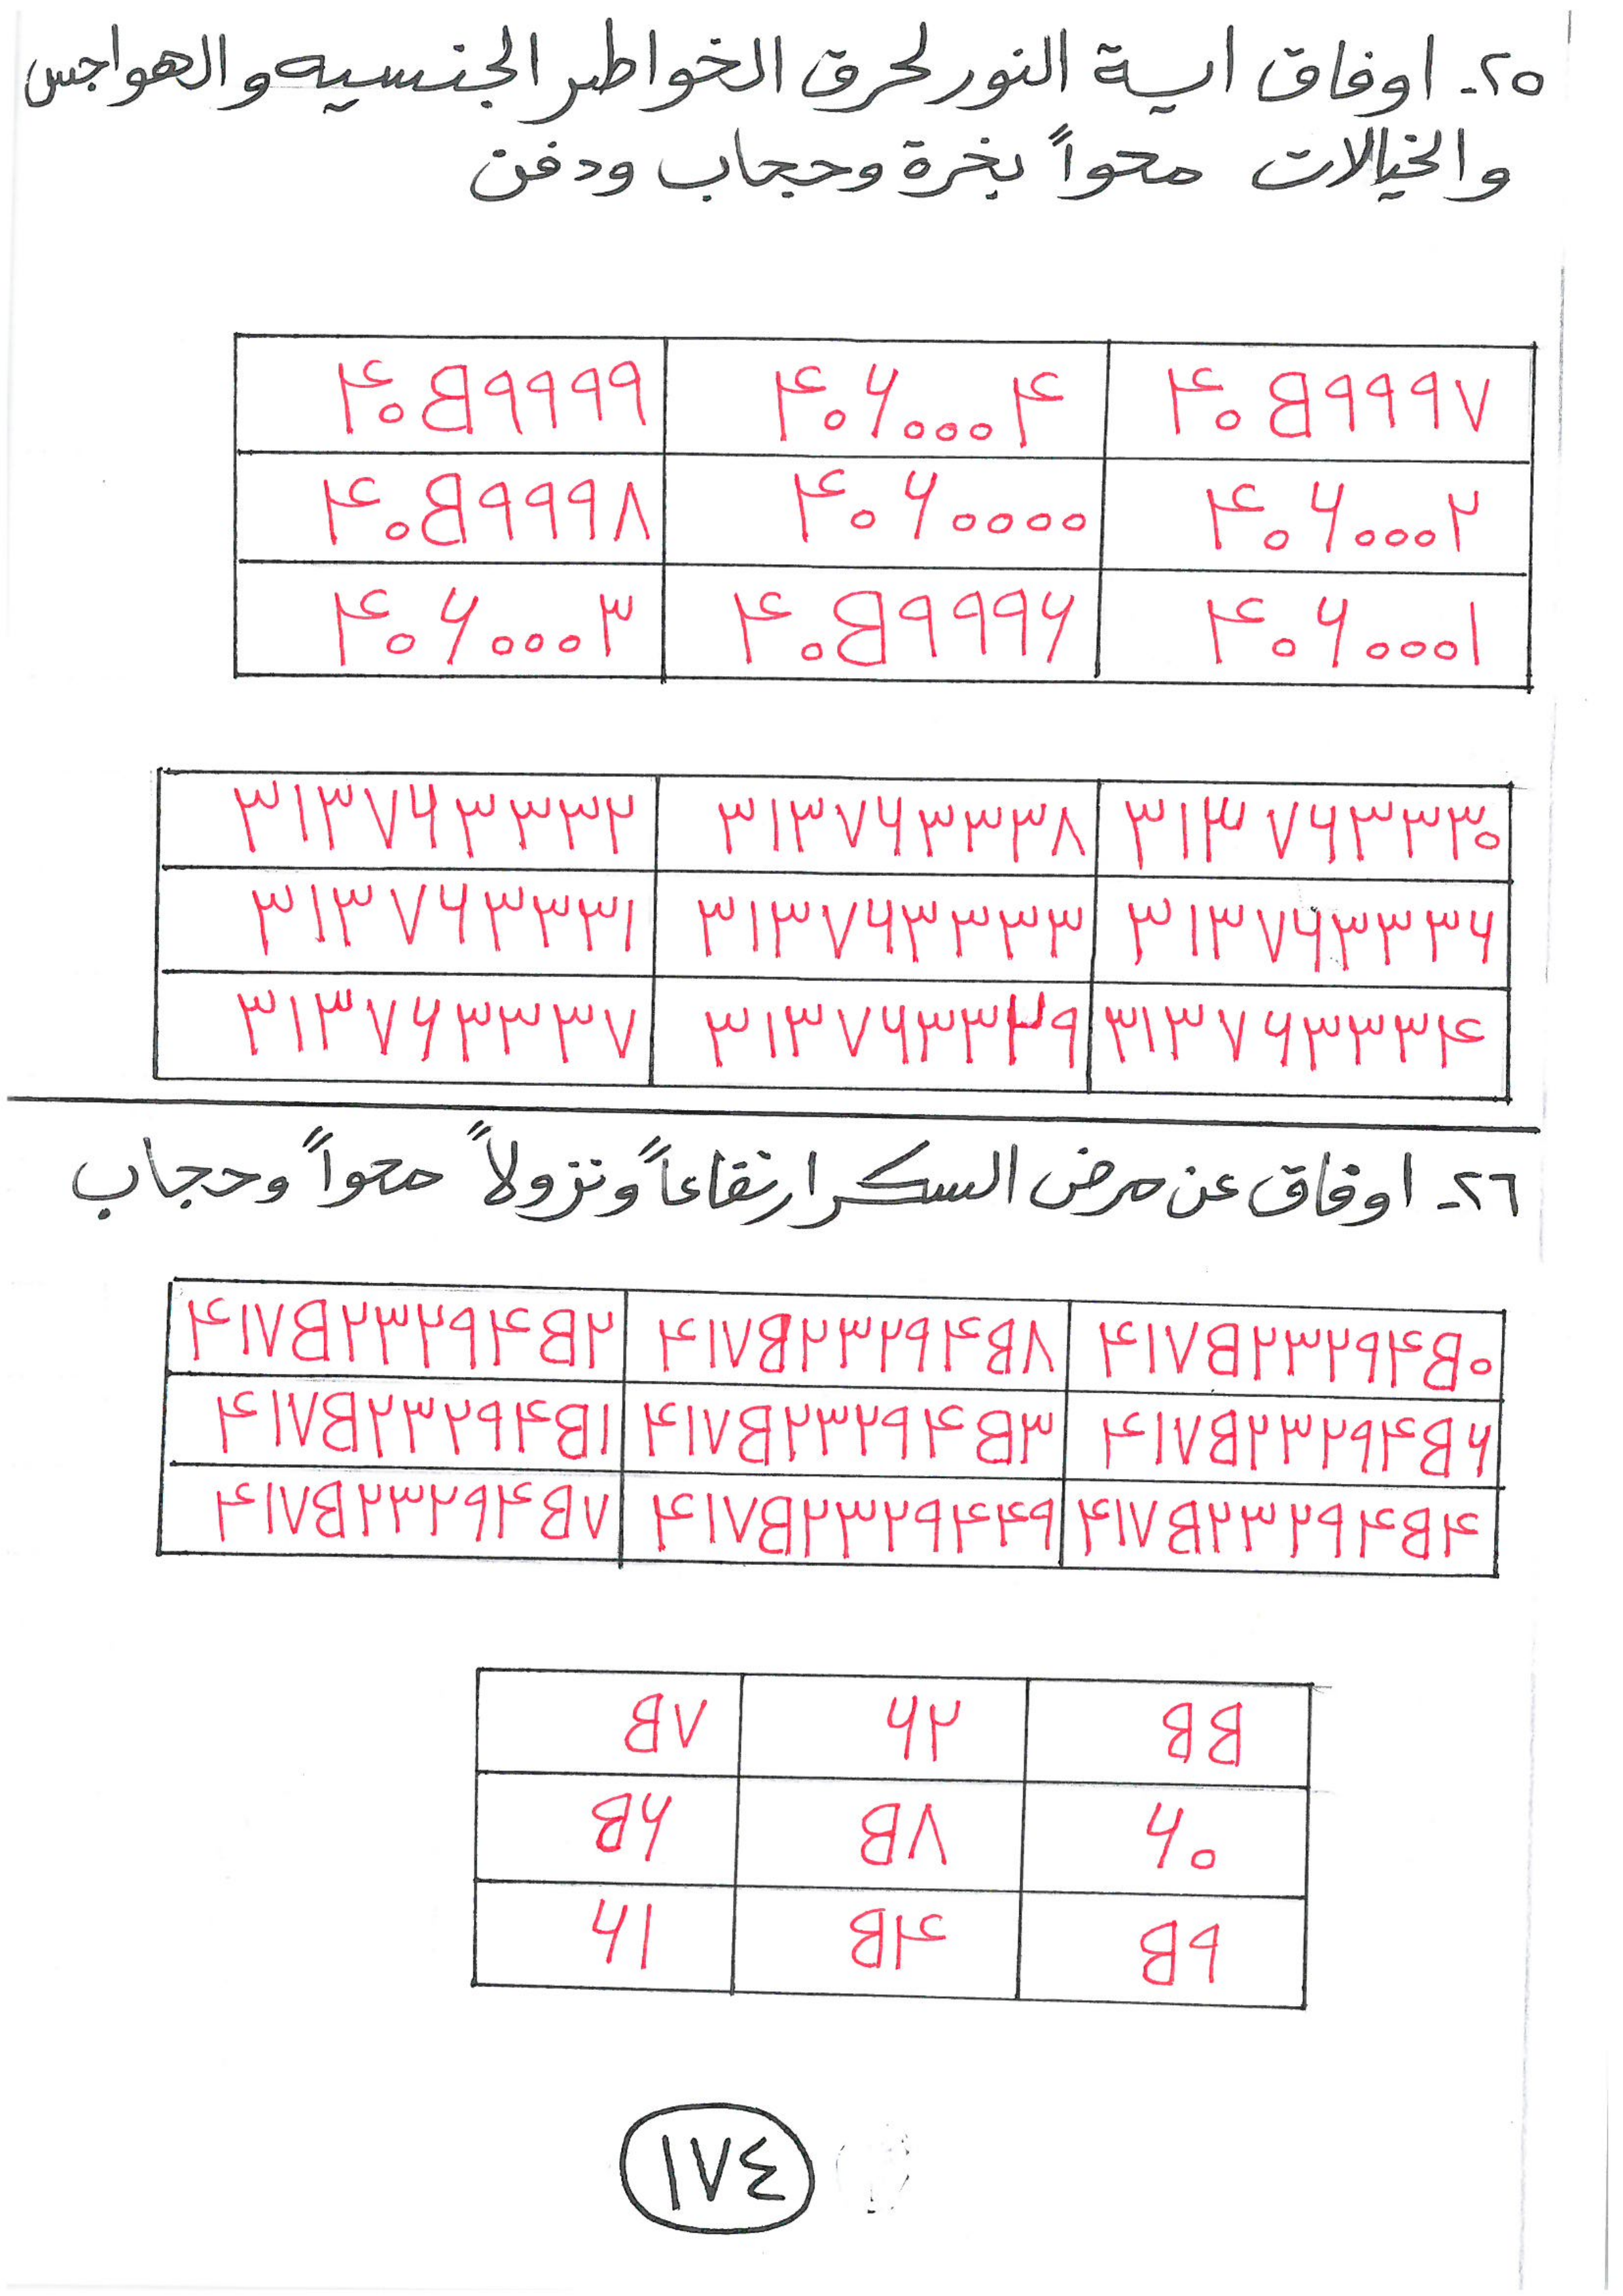 ٢٥- اوفاق اية النور لحرق الخواطر الجنسيه والهواجس
والخيالات محواً بخرة وحجاب ودفن
٤٠٥٩٩٩٧ ٤٠٦٠٠٠٤ ٤٠٥٩٩٩٩
٤٠٦٠٠٠٢ ٤٠٦٠٠٠٠ ٤٠٥٩٩٩٨
٤٠٦٠٠٠١ ٤٠٥٩٩٩٦ ٤٠٦٠٠٠٣
٣١٣٧٦٣٣٣٠ ٣١٣٧٦٣٣٣٨ ٣١٣٧٦٣٣٣٢
٣١٣٧٦٣٣٣٦ ٣١٣٧٦٣٣٣٣ ٣١٣٧٦٣٣٣١
٣١٣٧٦٣٣٣٤ ٣١٣٧٦٣٣٢٩ ٣١٣٧٦٣٣٣٧
٢٦- اوفاق عن مرض السكر ارتفاعاً ونزولاً محواً وحجاب
٤١٧٥٢٣٢٩٤٥٠ ٤١٧٥٢٣٢٩٤٥٨ ٤١٧٥٢٣٢٩٤٥٢
٤١٧٥٢٣٢٩٤٥٦ ٤١٧٥٢٣٢٩٤٥٣ ٤١٧٥٢٣٢٩٤٥١
٤١٧٥٢٣٢٩٤٥٤ ٤١٧٥٢٣٢٩٤٤٩ ٤١٧٥٢٣٢٩٤٥٧
٥٥ ٦٢ ٥٧
٦٠ ٥٨ ٥٦
٥٩ ٥٤ ٦١
١٧٤